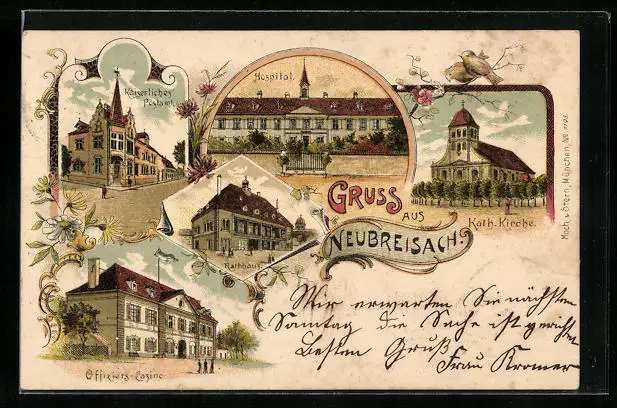 Kaiserliches
Postamt.
Hospital.
Kath. Kirche.
Rathhaus
Offiziers-Casino
GRUSS
AUS
NEUBREISACH.
Moch & Stern, München, No.
Wir erwarten Sie nächsten
Sonntag die Sache ist gericht
Besten Gruß
Frau Kromer